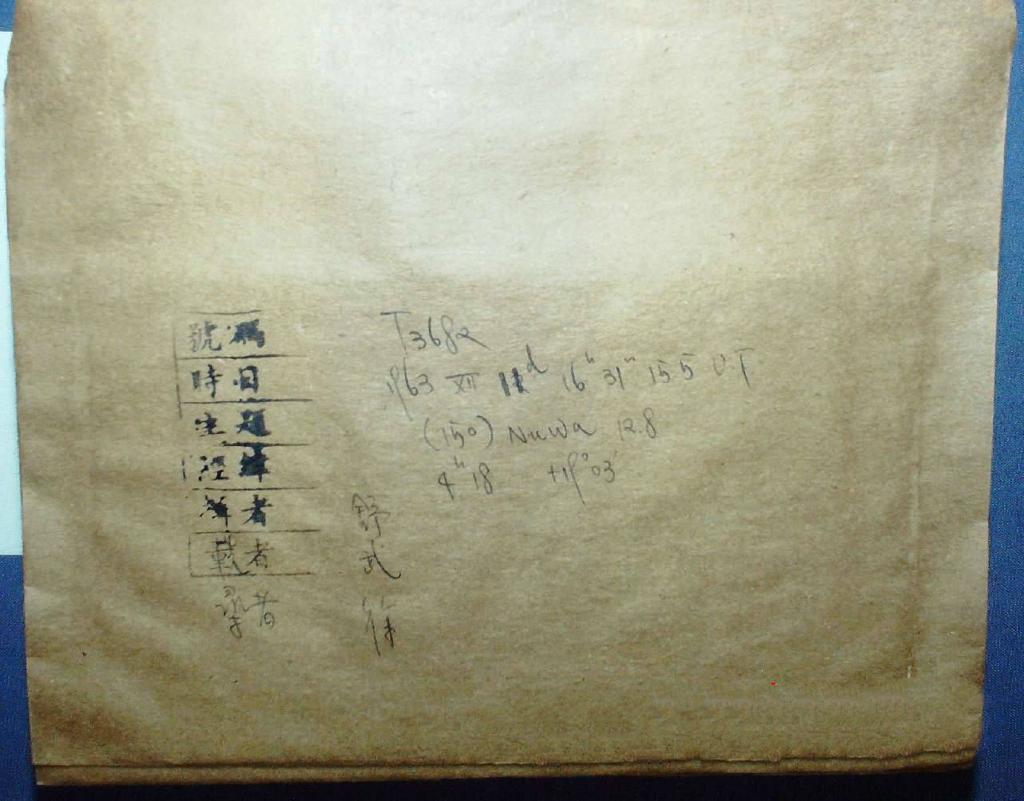 號碼
時日
經緯
者
載者
者
T3682
1963 XII 11ᵈ 16ʰ 31ᵐ 15.5 U.T
(150) Nuwa 12.8
4ʰ 18 +19°03'
舒
武
徐